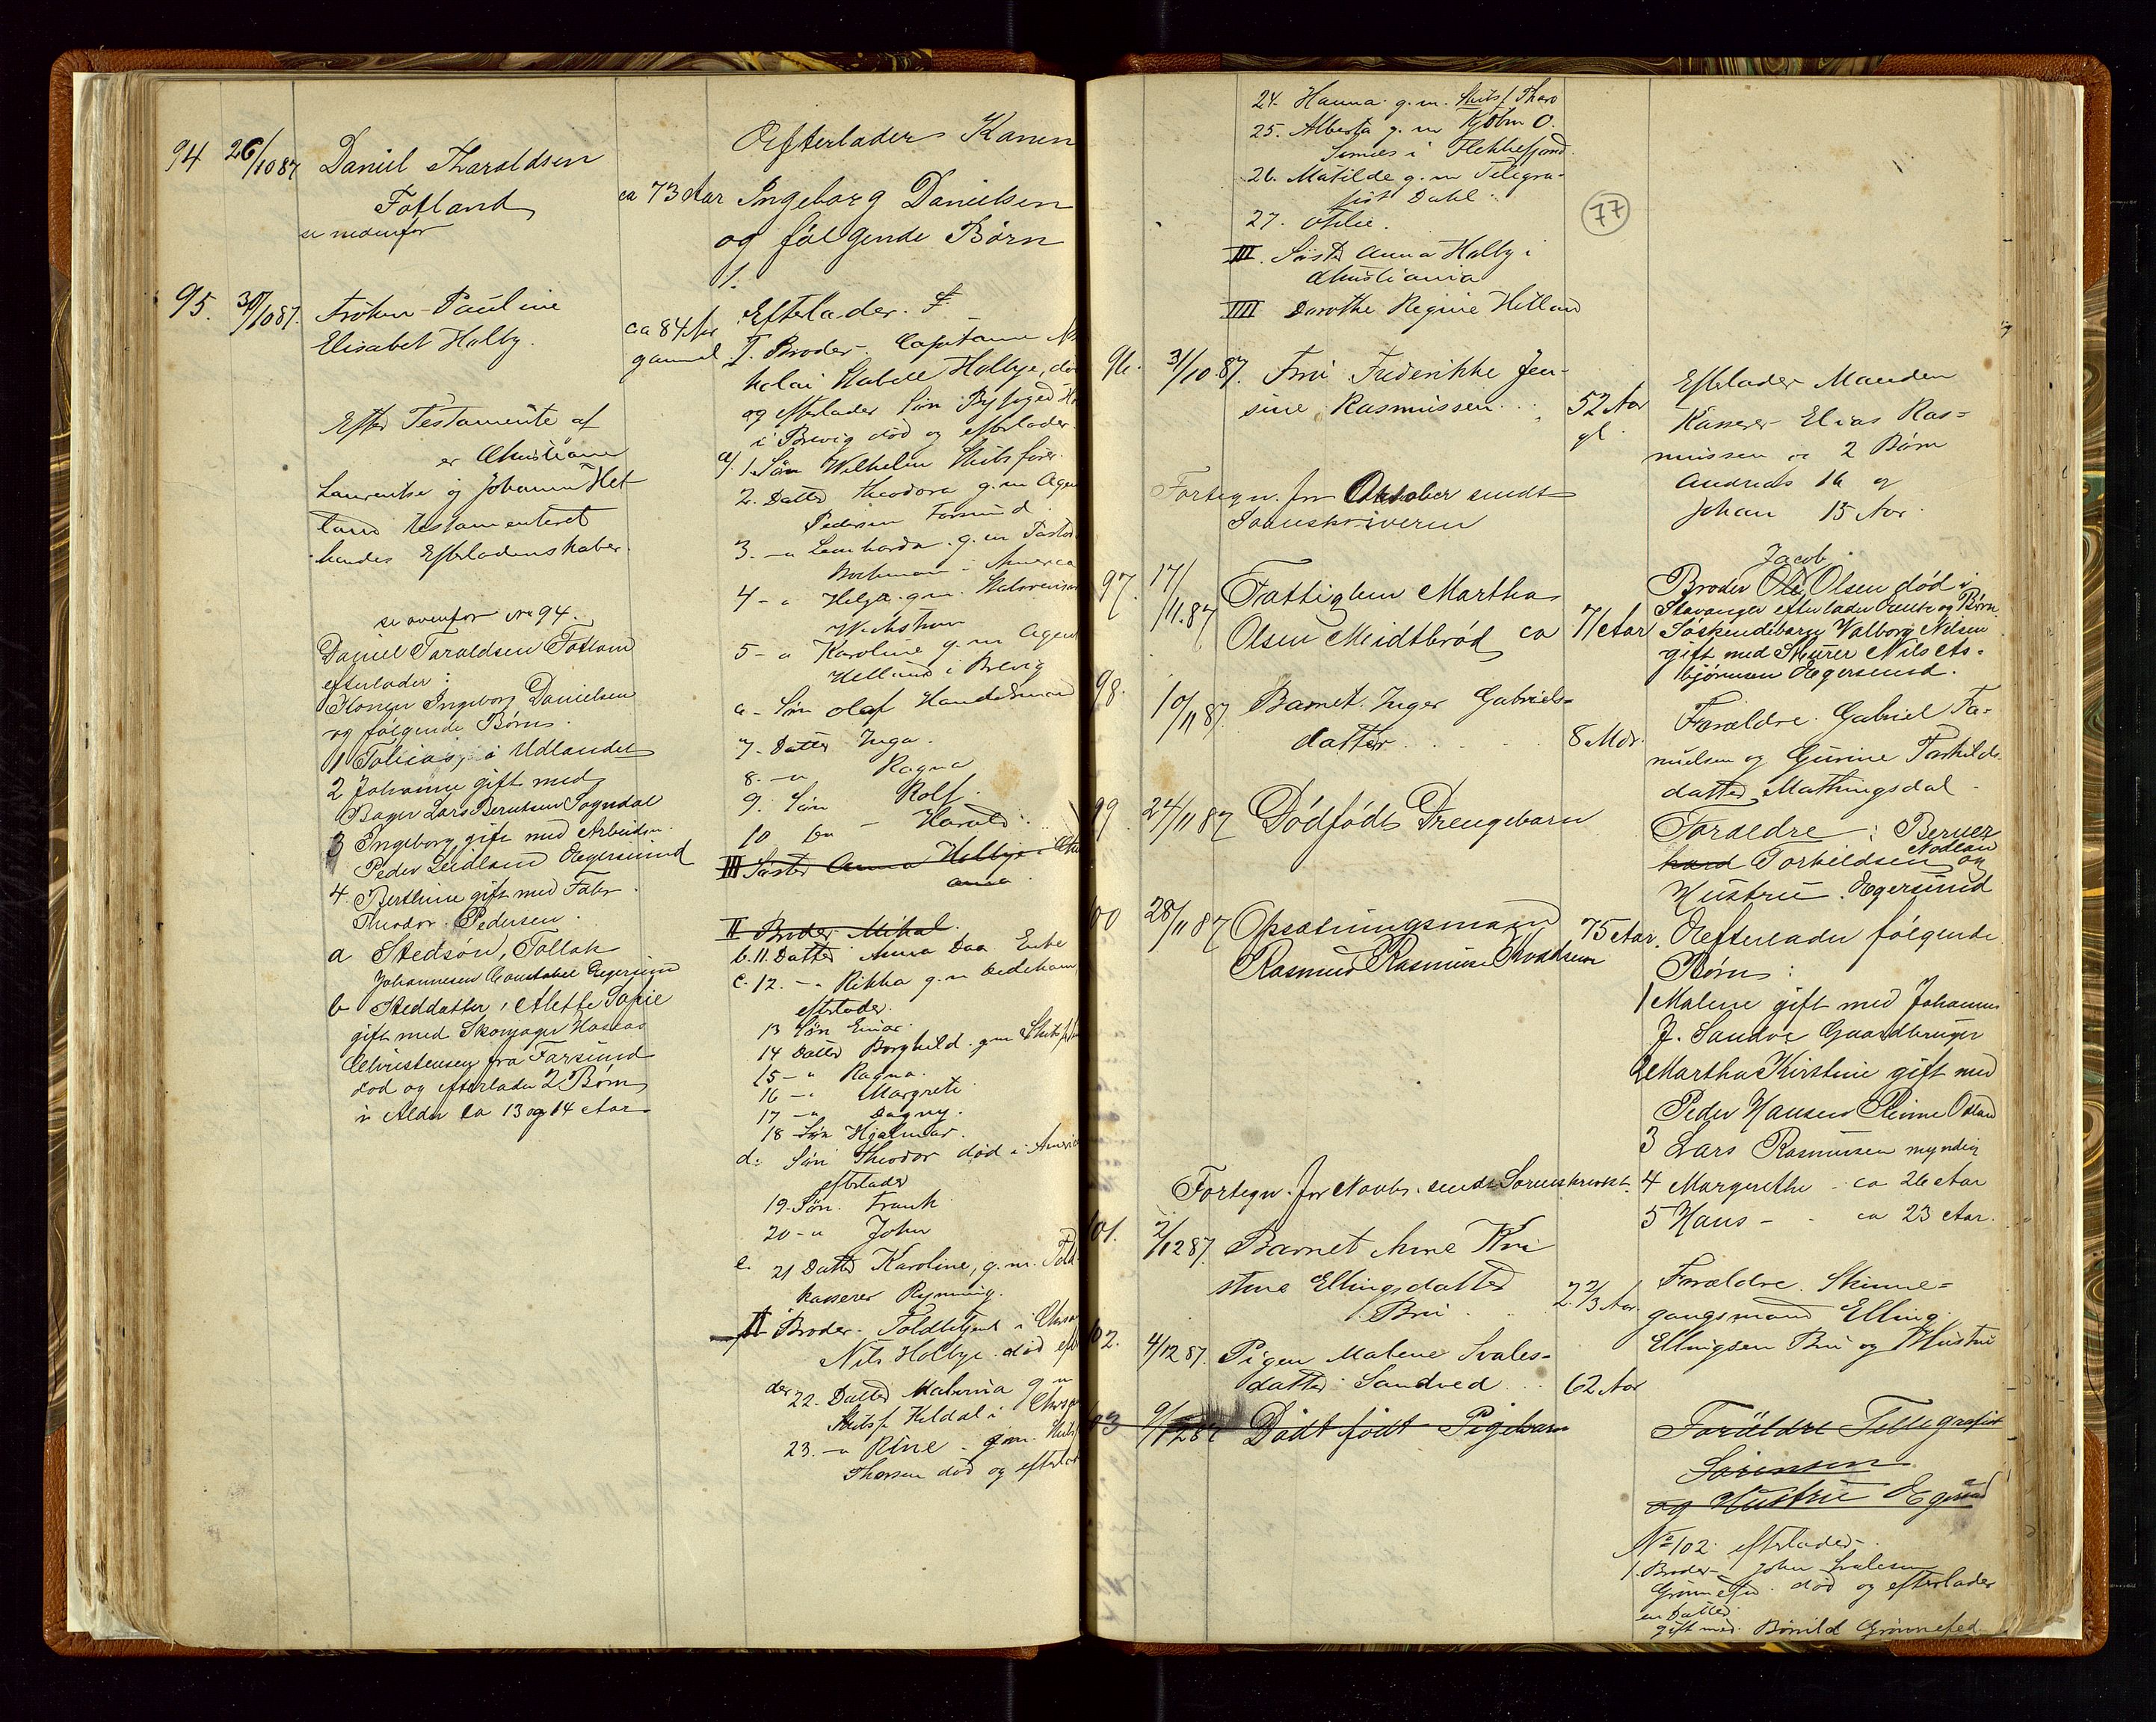 94 26/10 87 Daniel Tharaldsen
Fotland
se nedenfor
ca 73 Aar
Oefterlader Konen
Ingeborg Danielsen
og følgende Børn
1.
95. 31/10 87. Frøken Pauline
Elisabet Holby.
ca 84 Ar
gammel
Efter Testamente af
er Christiane
Laurentse og Johanne Het
land testamenteret
hendes Efterladenskaber.
se ovenfor No 94.
Daniel Taraldsen Fotland
efterlader:
Konen Ingeborg Danielsen
og følgende Børn.
1 Tobias, i Udlandet
2 Johanne gift med
Bager Lars Berntsen Sogndal
3 Ingeborg gift med Arbeidsm.
Peder Leidland Egersund
4. Berthine gift med Fabr.
Theodor Pedersen.
a Stedsøn, Tollak
Johannesen Constabel Egersund
b Steddatter, Alette Sofie
gift med Skomager
Christensen fra Farsund
død og efterlader 2 Børn
i Alder ca 13 og 14 Aar
Efterlader.
I. Broder. Capitaine Ni
kolai Stabell Holbye, død
og efterlader Søn Byfoged
i Brevig død og efterlader.
a/. 1. Søn Wilhelm Skibsfører.
2. Datter Theodora g. m Agen
Pedersen Farsund.
3. -" Leonharda. g. m Pastor
i America
4 - " Helga g. m.
5 - " Karoline g. m Agent
Helland i Brevig
6 - Søn Olaf Handelsmand
7. Datter Inga.
8. -" Ragna
9. Søn Rolf.
10 en - Harald.
III Søster Anna Holbye i Chri
ania
II Broder Mikal.
b. 11. Datter Anna Daa Enke
c. 12. -" Rikka g. m
efterlader.
13 Søn Einar.
14 Datter Borghild. g. m Skibsf
15 - " Ragna.
16 -" Margrete
17 -" Dagny.
18 Søn Hjalmar.
d. Søn Theodor død i Ameri
efterlader
19. Søn. Frank
20 -" John
e. 21 Datter Karoline, g. m. Told
kasserer Ryning.
II Broder. Toldbetjent i
Nils Holbye død efter
der 22. Datter Malvina g m
Skibsf. Keldal i
23. -" Rine g. m. Skibs
Thorsen død og efterlad
24. Hanna g. m. Skibsf. Thoro
25. Alberta g. m Kjøbm O.
Simers i Flekkefjord.
26. Matilde g. m Telegra-
fist Dahl.
27. Otilie.
III. Søster Anna Holby i
Christiania
IIII Dorothe Regine Hetland
77
96. 31/10. 87. Fru Frederikke Jen-
sine Rasmussen
52 Aar
gl.
Efterlader Manden
Kasserer Elias Ras=
mussen og 2 Børn
Andreas 16 og
Johan 15 Aar.
Fortegn. for Oktober sendt
Sorenskriveren
97. 17/11. 87 Fattiglem Martha
Olsen Meidtbrød ca 71 Aar
Jacob
Broder Ole Olsen død i
Stavanger efterlader Enke og Børn
Søskendebarn Valborg Nilsen
gift med Skurer Nils As-
bjørnsen Egersund.
98. 10/11 87. Barnet Inger Gabriels=
datter
8 Mdr.
Forældre. Gabriel Ta-
nielsen og Gurine Torkilds-
datter Mathingsdal
99. 24/11 87 Dødfødt Drengebarn
Foraeldre: Berner
hard Torkildsen Nodland og
Hustru. Egersund
00 28/11 87 Opsætningsmand
Rasmus Rasmussen
75 Aar.
Oefterlader følgende
Børn:
1 Malene gift med Johannes
J. Sandve Gaardbruger
2 Martha Kirstine gift med
Peder Hansen
3 Lars Rasmussen myndig
4 Margrethe - ca 26 Aar
5 Hans - - ca 23 Aar.
Fortegn. for Novbr. sendt Sorenskrivert.
01. 2/12 87. Barnet Anne Kri
stine Ellingsdatter
Bru
2 2/3 Aar.
Forældre. Skinne=
gangsmand Elling
Ellingsen Bru og Hustru
02. 4/12 87. Pigen Malene Svales=
datter Sandved
62 Aar
03 9/12 87 Dødt født Pigebarn
Forældre Telegrafist
Sørensen
og Hustru Egersund
No 102. efterlader
1. Broder- John Svalesen
Grønnefed. død og efterlader
en Datter.
gift med. Grønnefed